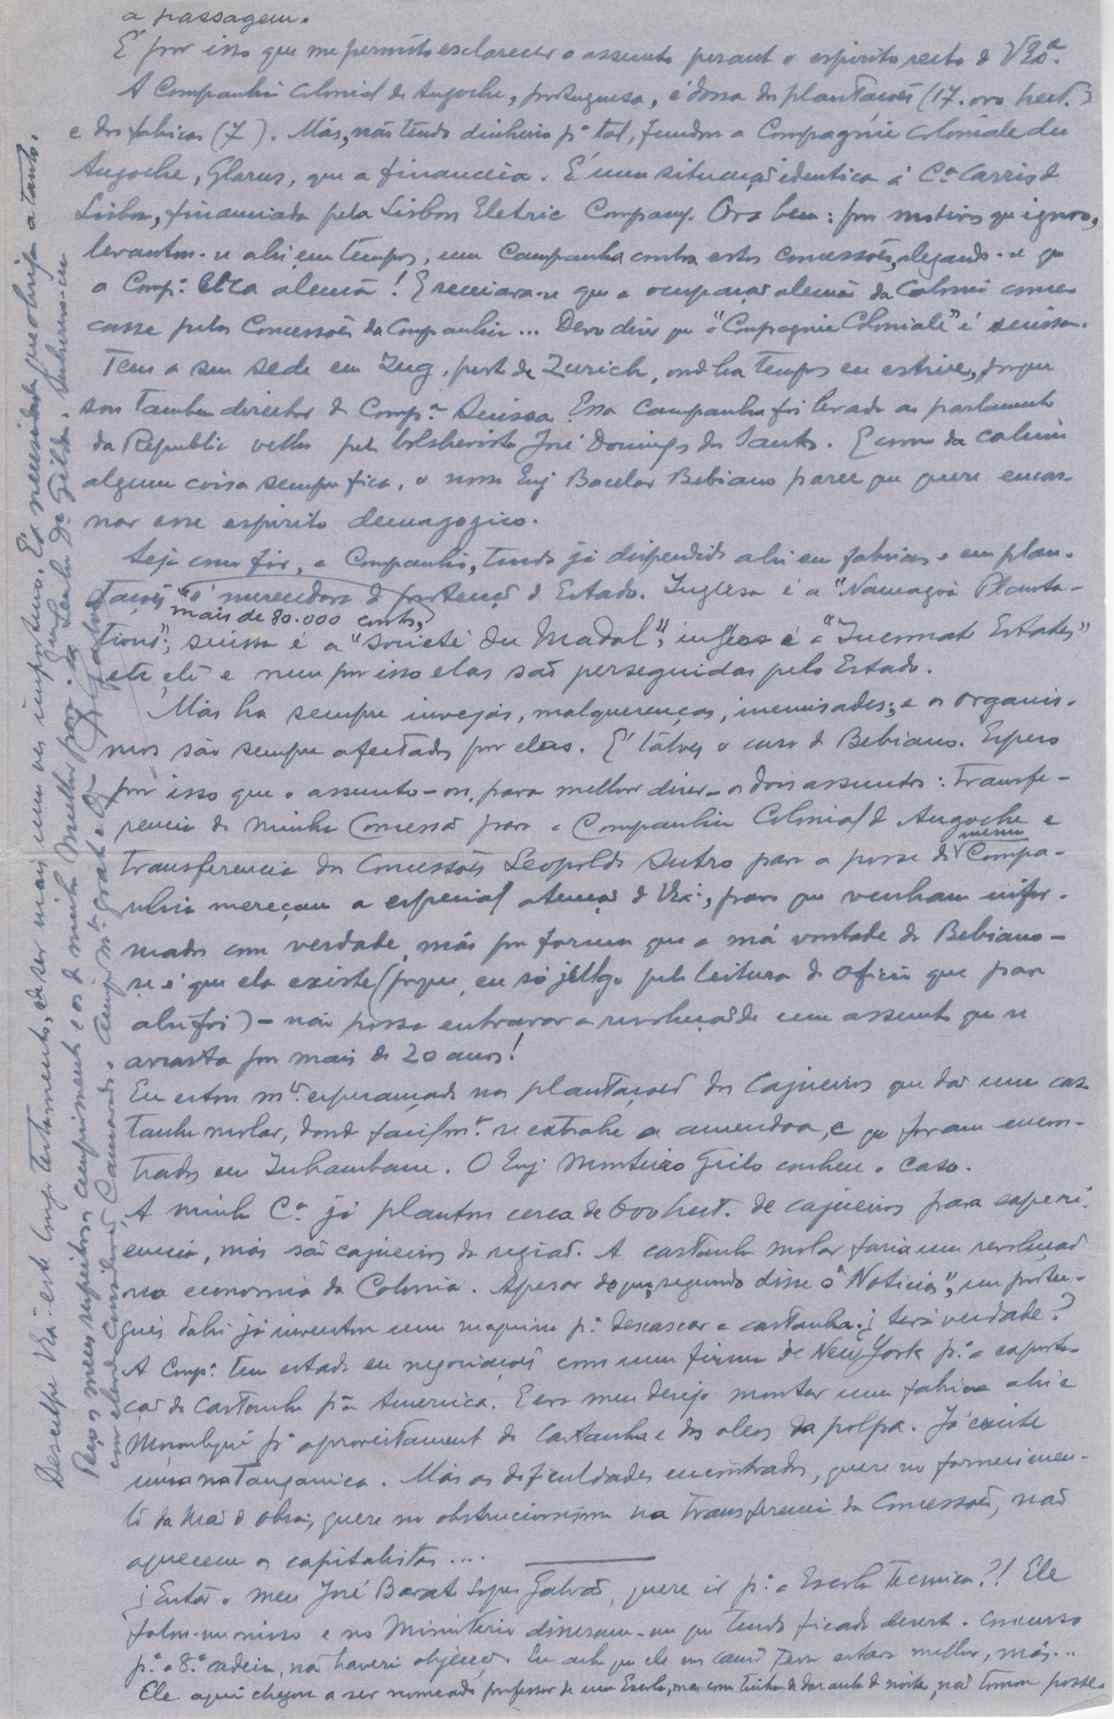 a passagem.
É por isso que me permito esclarecer o assunto perant o espirito recto d V Exª.
A Companhia Colonial de Angoche, portuguesa, é dona das plantações (17.000 hect.)
e das fabricas (7). Mas, não tendo dinheiro pª tal, fundou a Compagnie Coloniale du
Angoche, Glarus, que a financia. É uma situação identica á Cª Carris d
Lisboa, financiada pela Lisbon Eletric Company. Ora bem: por motivos que ignoro,
levantou-se ahi, em tempos, uma Campanha contra estas concessões, alegando-se que
a Compª era alemã! E receiava-se que a ocupação alemã da Colonia come-
casse pelas Concessões da Companhia... Devo dizer que a "Compagnie Coloniale" é suissa.
Tem a sua sede em Zug, perto de Zurich, onde ha tempos eu estive, porque
sou tambem director da Compª Suissa. Essa campanha foi levada ao parlamento
da Republica velha pelo bolshevista José Domingos dos Santos. E como da calunia
alguma coisa sempre fica, o nosso Eng Bacelar Bebiano parece que quere encar-
nar esse espirito demagogico.
Seja como fôr, a Companhia, tendo já dispendido ahi em fabricas e em plan-
tações mais de 80.000 contos,
é merecedora d protecção d Estado. Inglesa é a "Namagoa Planta-
tions"; suissa é a "Societé du Madal"; inglesa é a "Incomati Estates"
etc, etc e nem por isso elas são perseguidas pelo Estado.
Mas ha sempre invejas, malquerenças, inimisades; e os organis-
mos são sempre afectados por elas. É talvez o caso d Bebiano. Espero
por isso que o assunto - ou, para melhor dizer - os dois assuntos: Transfe-
rencia da minha Concessão para a Companhia Colonial d Angoche e
transferencia das Concessões Leopoldo Sutro para a posse da mesma Compa-
nhia mereçam a especial atenção d V Exª, para que venham infor-
mados com verdade, mas por forma que a má vontade do Bebiano -
se é que ela existe (porque, eu só julgo pela leitura do oficio que para
ahi foi) - não possa entravar a resolução de um assunto que se
arrasta por mais de 20 anos!
Eu estou mto esperançado nas plantações dos Cajueiros que dão uma cas-
tanha molar, donde facilmte se extrahe a amendoa, e que foram encon-
trados em Inhambane. O Eng Monteiro Grilo conhece o caso.
A minha Cª já plantou cerca de 600 hect. de cajueiros para experi-
encia, mas são cajueiros da região. A castanha molar faria uma revolução
na economia da Colonia. Apesar de que, segundo disse o "Noticias", um portu-
guês dahi já inventou uma maquina pª descascar a castanha. ¿ Será verdade?
A Compª tem estado em negociações com uma firma de New York pª a exporta-
ção da Castanha pª a America. E era meu desejo montar uma fabrica ahi e
Moçambique pª aproveitamento da Castanha e dos oleos da polpa. Já existe
uma na Tanganica. Mas as dificuldades encontradas, quere no fornecimen-
to da mão d obra, quere no obstrucionismo na transferencia das Concessões, não
aquecem os capitalistas....
¿ Então o meu José Barat Lopes Galvão, quere ir pª a Escola Tecnica?! Ele
falou-me nisso e no Ministerio disseram-me que tendo ficado deserto o concurso
pª a 8ª cadeira, não haveria objecção. Eu acho que ele em Lourº Ps estava melhor, mas...
Ele aqui chegou a ser nomeado professor de uma Escola, mas com tinha d dar aula d noite, não tomou posse.
Desculpe V Exª este impertinente, de ser mais uma vez importuno. É a necessidade que obriga a tanto.
Peço meus respeitosos cumprimentos e os de minha Mulher para a Senhora Dª Gilda, subscrevo-me
com elevada consideração Camarada e amigo mto grato e Obgdo